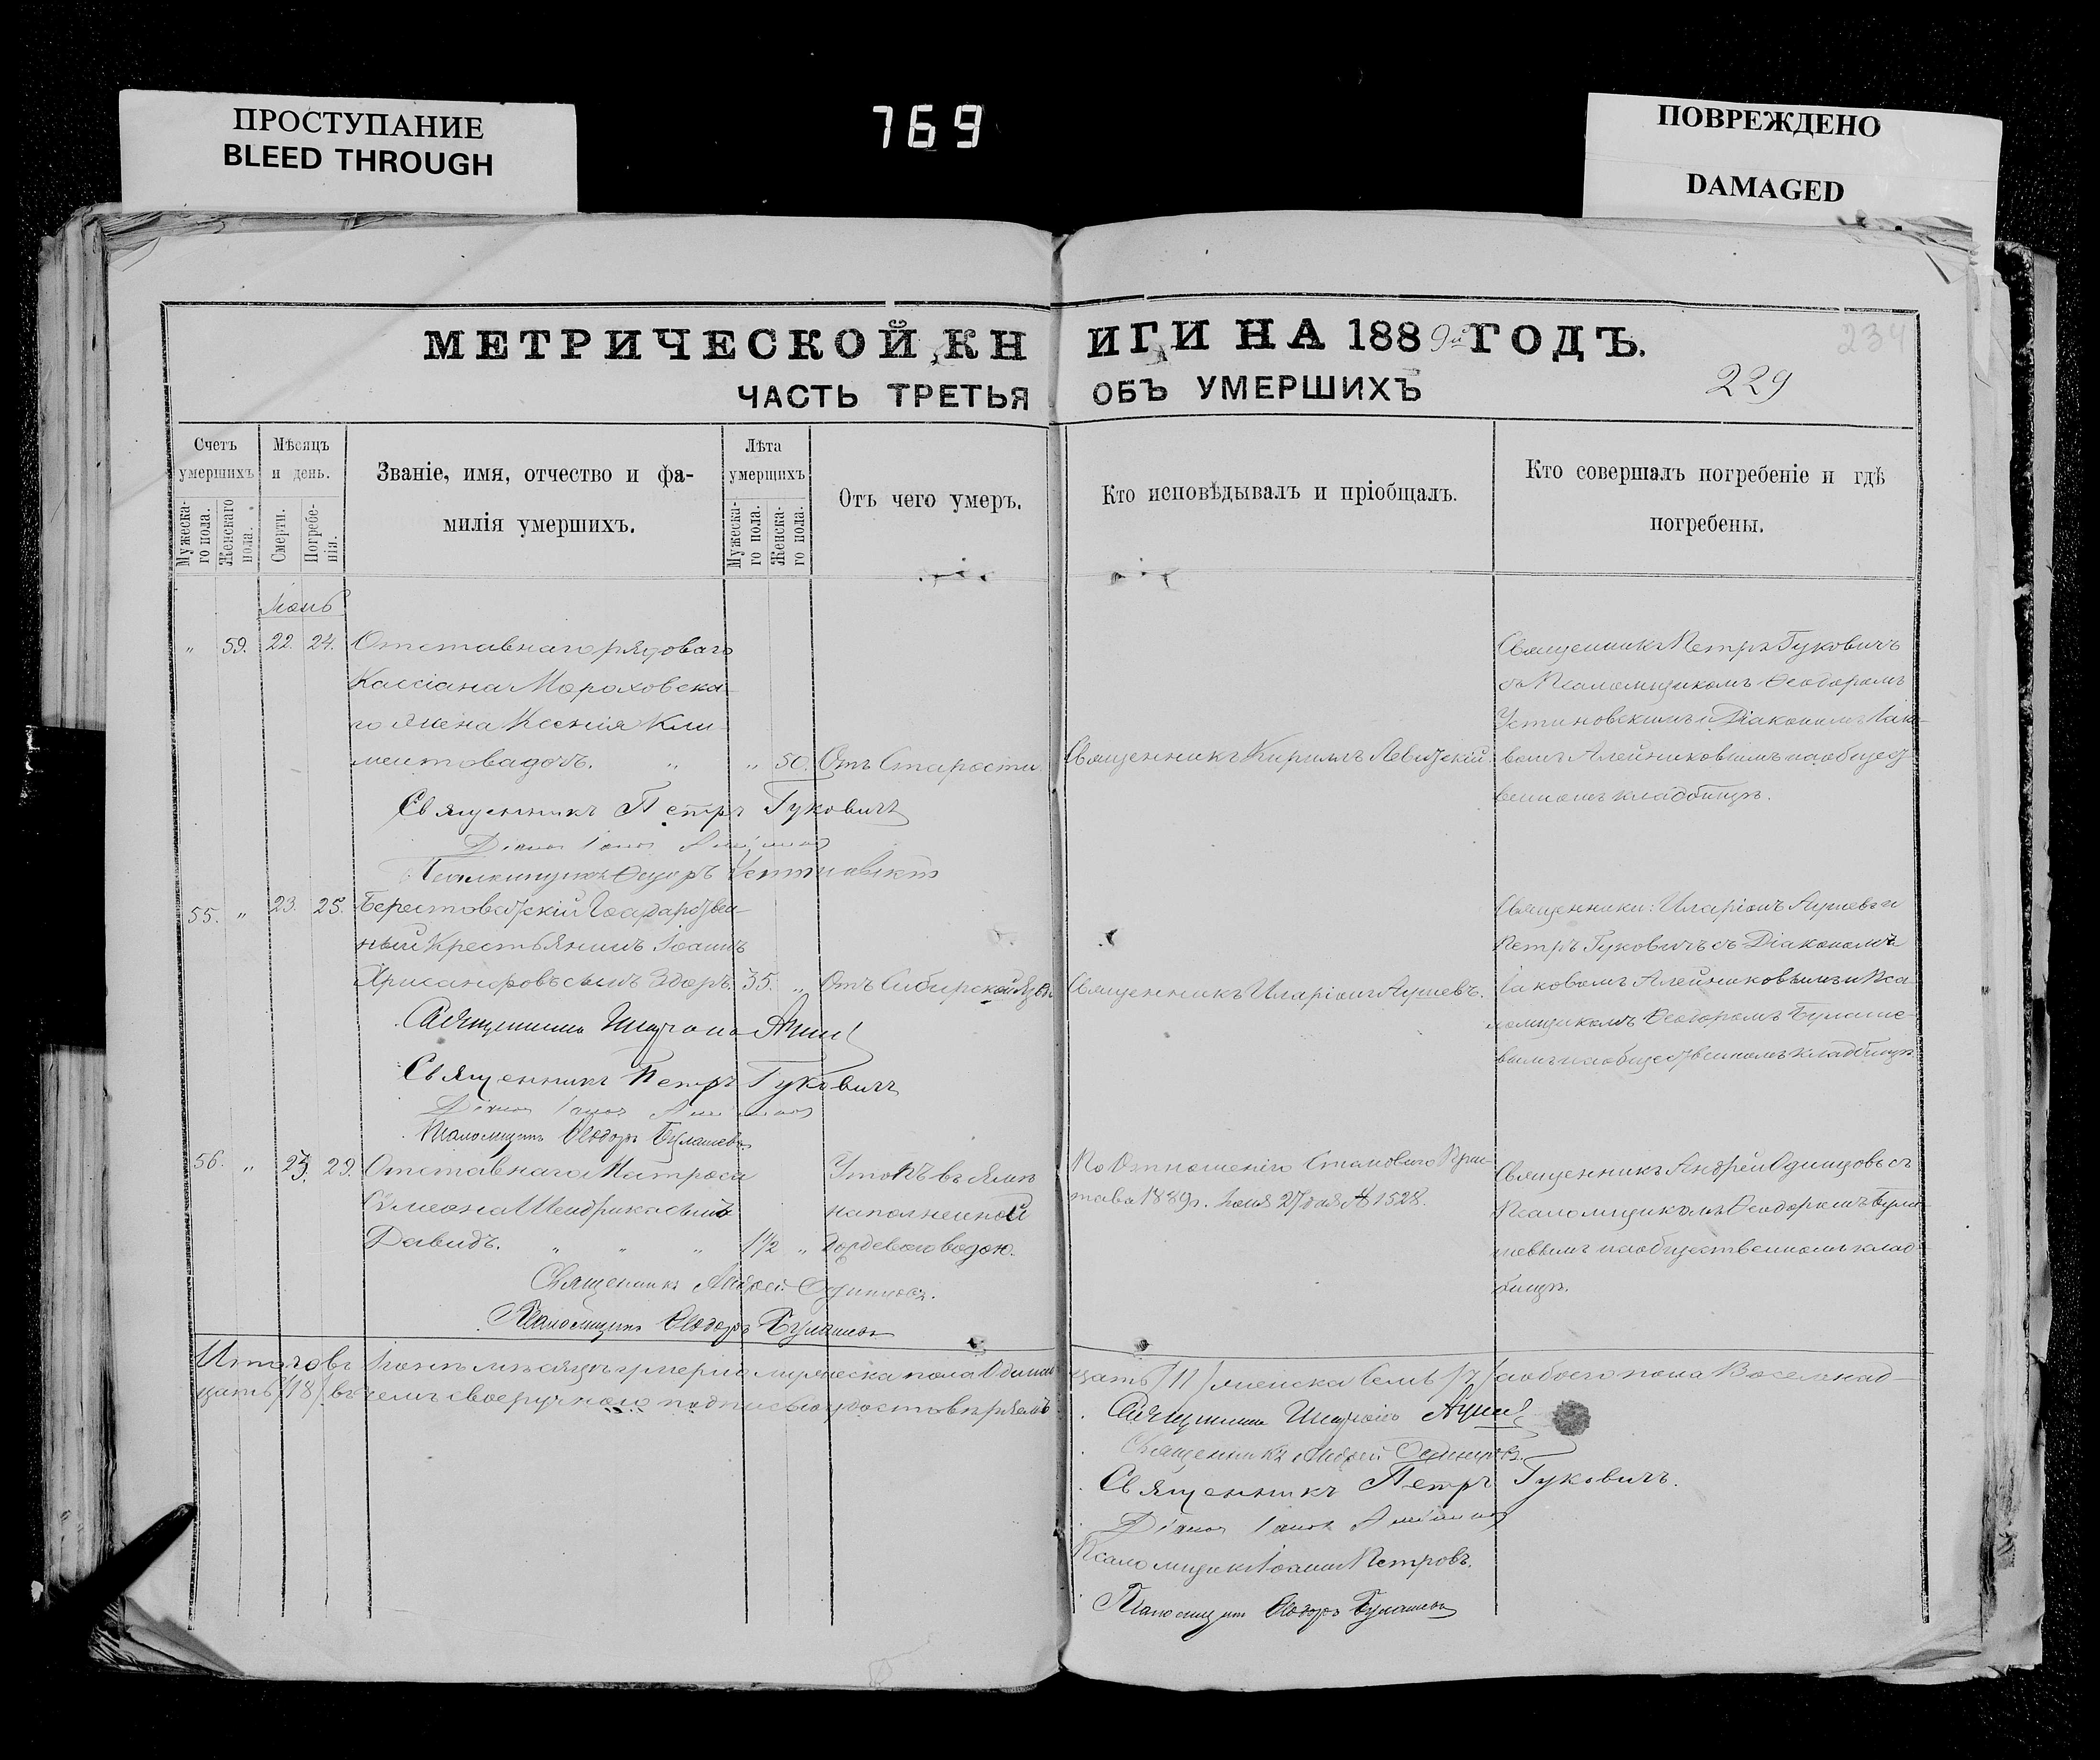 ПРОСТУПАНИЕ
BLEED THROUGH
769
ПОВРЕЖДЕНО
DAMAGED
МЕТРИЧЕСКОЙ КНИГИ НА 1889й ГОДЪ.
234
ЧАСТЬ ТРЕТЬЯ ОБЪ УМЕРШИХЪ
229
Счетъ умершихъ
Мужеска-го пола.
Женскаго пола.
Мѣсяцъ и день.
Смерти.
Погребе-нія.
Званіе, имя, отчество и фа-
милія умершихъ.
Лѣта умершихъ
Мужеска-го пола.
Женска-го пола.
Отъ чего умеръ.
Кто исповѣдывалъ и пріобщалъ.
Кто совершалъ погребеніе и гдѣ
погребены.
" 59. 22. 24. Отставнаго рядоваго
Кассіана Мораховска-
го жена Ксенія Кли-
ментова дочь. " " 50. Отъ Старости
Священникъ Кириллъ Левитскій.
Священникъ Петръ Гуковичъ
съ Псаломщикомъ Ѳеодоромъ
Устиновскимъ и Діакономъ Іако-
вомъ Алейниковымъ на общест-
венномъ кладбищѣ.
Священникъ Петръ Гуковичъ
Псаломщикъ Ѳеодоръ Устиновскій
55. " 23. 25. Берестоватскій Государствен-
ный Крестьянинъ Іоаннъ
Хрисанфовъ сынъ 35. " Отъ Сибирской язвы
Священникъ Иларіонъ
Священники: Иларіонъ
Петръ Гуковичъ съ Діакономъ
Іаковомъ Алейниковымъ и Пса-
ломщикомъ Ѳеодоромъ Булаше-
вымъ на общественномъ кладбищѣ
Священникъ Иларіонъ
Священникъ Петръ Гуковичъ
Псаломщикъ Ѳеодоръ Булашевъ
56. " 25. 29. Отставнаго Матроса
Симеона сынъ
Давидъ. " " " 1 1/2 " Утопъ въ ямѣ
наполненной
водою.
По Отношенію Становаго Прис-
тава 1889 г. Іюня 27 дня № 1528.
Священникъ Андрей Одинцовъ съ
Псаломщикомъ Ѳеодоромъ Була-
шевымъ на общественномъ клад-
бищѣ.
Священникъ Андрей Одинцовъ.
Псаломщикъ Ѳеодоръ Булашевъ
Итого въ Іюнѣ мѣсяцѣ умерло мужеска пола Одинад-
цать /11/ женска Семь /7/ а обоего пола Восемнад-
цать /18/ въ чемъ своеручною подписью удостовѣряемъ
Священникъ Иларіонъ
Священникъ Андрей Одинцовъ.
Священникъ Петръ Гуковичъ.
Псаломщикъ Іоаннъ Петровъ.
Псаломщикъ Ѳеодоръ Булашевъ